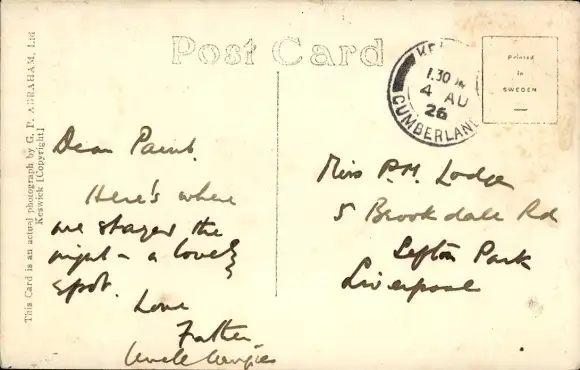 Post Card
This Card is an actual photograph by G. P. ABRAHAM, Ltd
Keswick [Copyright]
KE
1.30
4 AU
26
CUMBERLAND
Printed
in
SWEDEN
Dear
Here's where
we stayed the
night - a lovely
spot.
Love
Father
Uncle
Miss P.M. Lodge
5 Brookdale Rd
Sefton Park
Liverpool